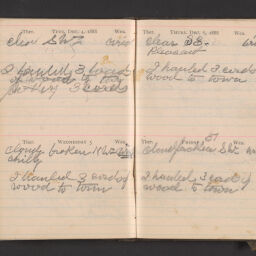 Ther. TUES. DEC. 4, 1888 Wea.
clear S W
I hauled 3 loads
of wood to
3 cords
Ther. WEDNESDAY 5 Wea.
Cloudy broken N W
chilly
I hauled 3 cords of
wood to town
Ther. THURS. DEC. 6, 1888 Wea.
Clear S E.
Pleasant
I hauled 3 cords
wood to town
Ther. FRIDAY 7 Wea.
Cloudy broken S W
I hauled 3 cord of
wood to town